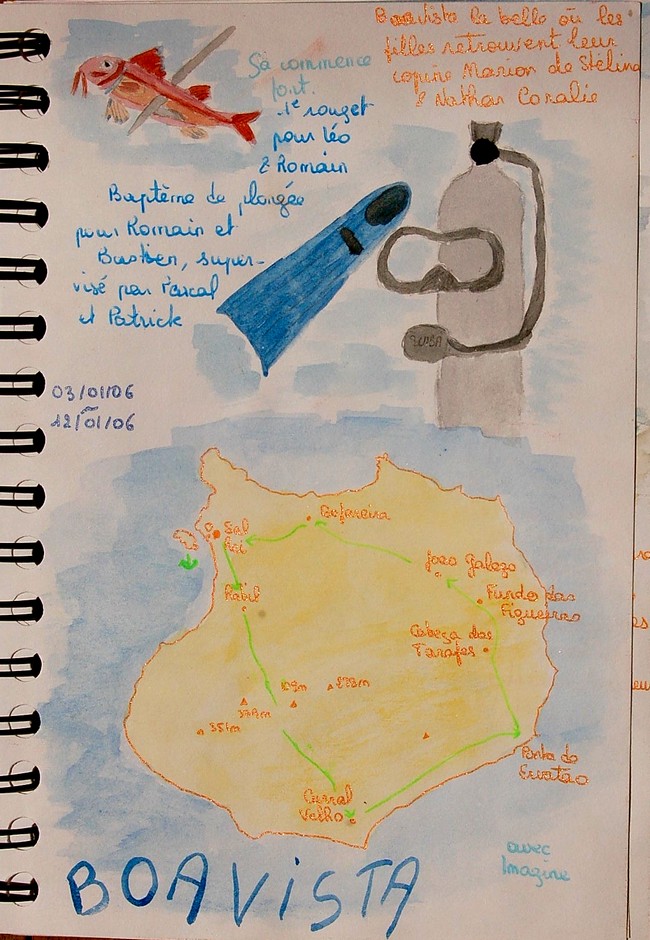 Boavista la belle où les
filles retrouvent leur
copine Marion de Stélina
& Nathan Coralie
Sa commence
fort.
1e rouget
pour Léo
& Romain
Baptème de plongée
pour Romain et
Bastien, super-
visé par Pascal
et Patrick
SCUBA
03/01/06
12/01/06
Bofareira
Sal
Rei
Joao Galego
Rabil
Fundo das
Figueiras
Cabeça dos
Tarafes
273m
379m
351m
Ponta do
Ervatão
Curral
Velho
avec
Imagine
BOAVISTA